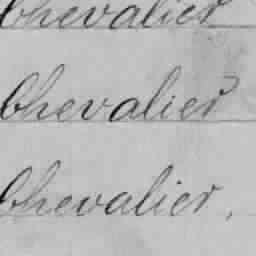 Chevalier
Chevalier
Chevalier,